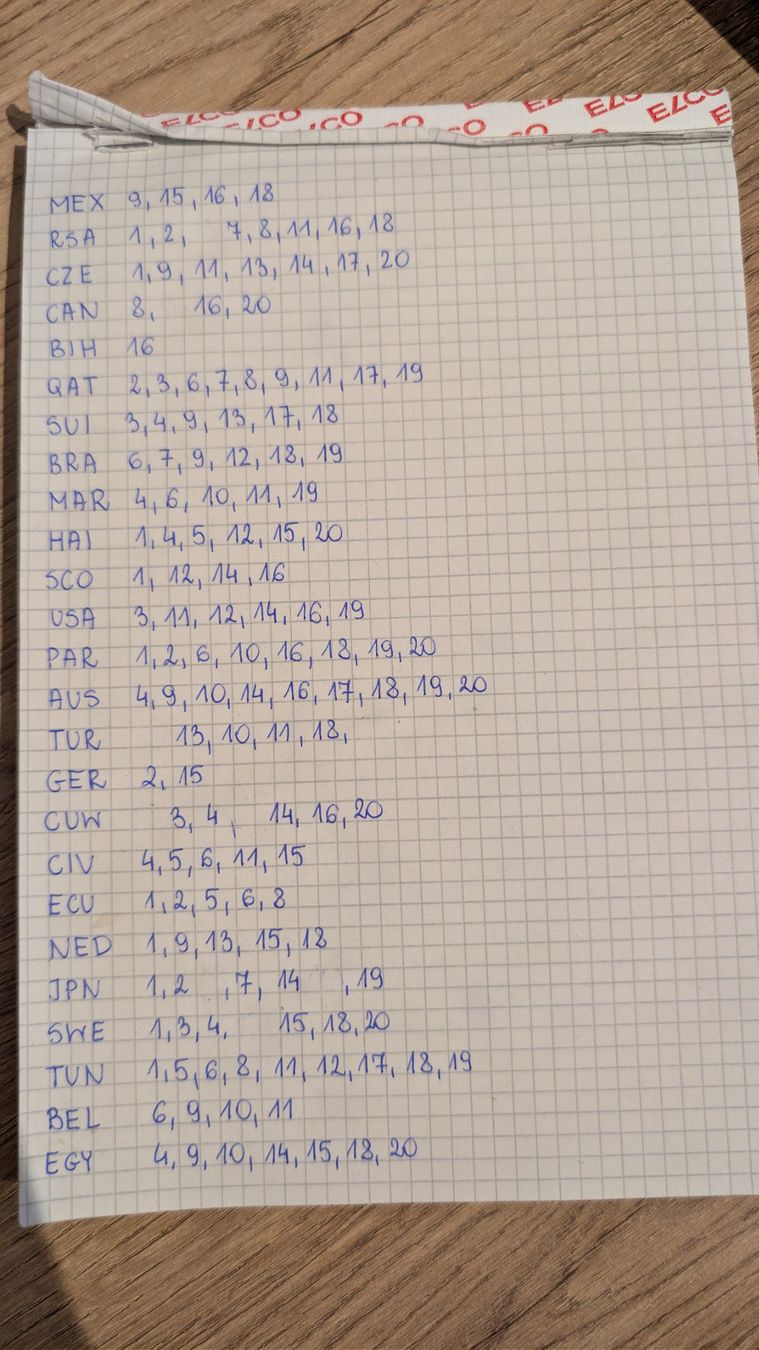 ELCO ELCO ELCO ELCO ELCO
MEX 9, 15, 16, 18
RSA 1, 2, 7, 8, 11, 16, 18
CZE 1, 9, 11, 13, 14, 17, 20
CAN 8, 16, 20
BIH 16
QAT 2, 3, 6, 7, 8, 9, 11, 17, 19
SUI 3, 4, 9, 13, 17, 18
BRA 6, 7, 9, 12, 18, 19
MAR 4, 6, 10, 11, 19
HAI 1, 4, 5, 12, 15, 20
SCO 1, 12, 14, 16
USA 3, 11, 12, 14, 16, 19
PAR 1, 2, 6, 10, 16, 18, 19, 20
AUS 4, 9, 10, 14, 16, 17, 18, 19, 20
TUR 13, 10, 11, 18,
GER 2, 15
CUW 3, 4, 14, 16, 20
CIV 4, 5, 6, 11, 15
ECU 1, 2, 5, 6, 8
NED 1, 9, 13, 15, 18
JPN 1, 2 , 7, 14 , 19
SWE 1, 3, 4, 15, 18, 20
TUN 1, 5, 6, 8, 11, 12, 17, 18, 19
BEL 6, 9, 10, 11
EGY 4, 9, 10, 14, 15, 18, 20